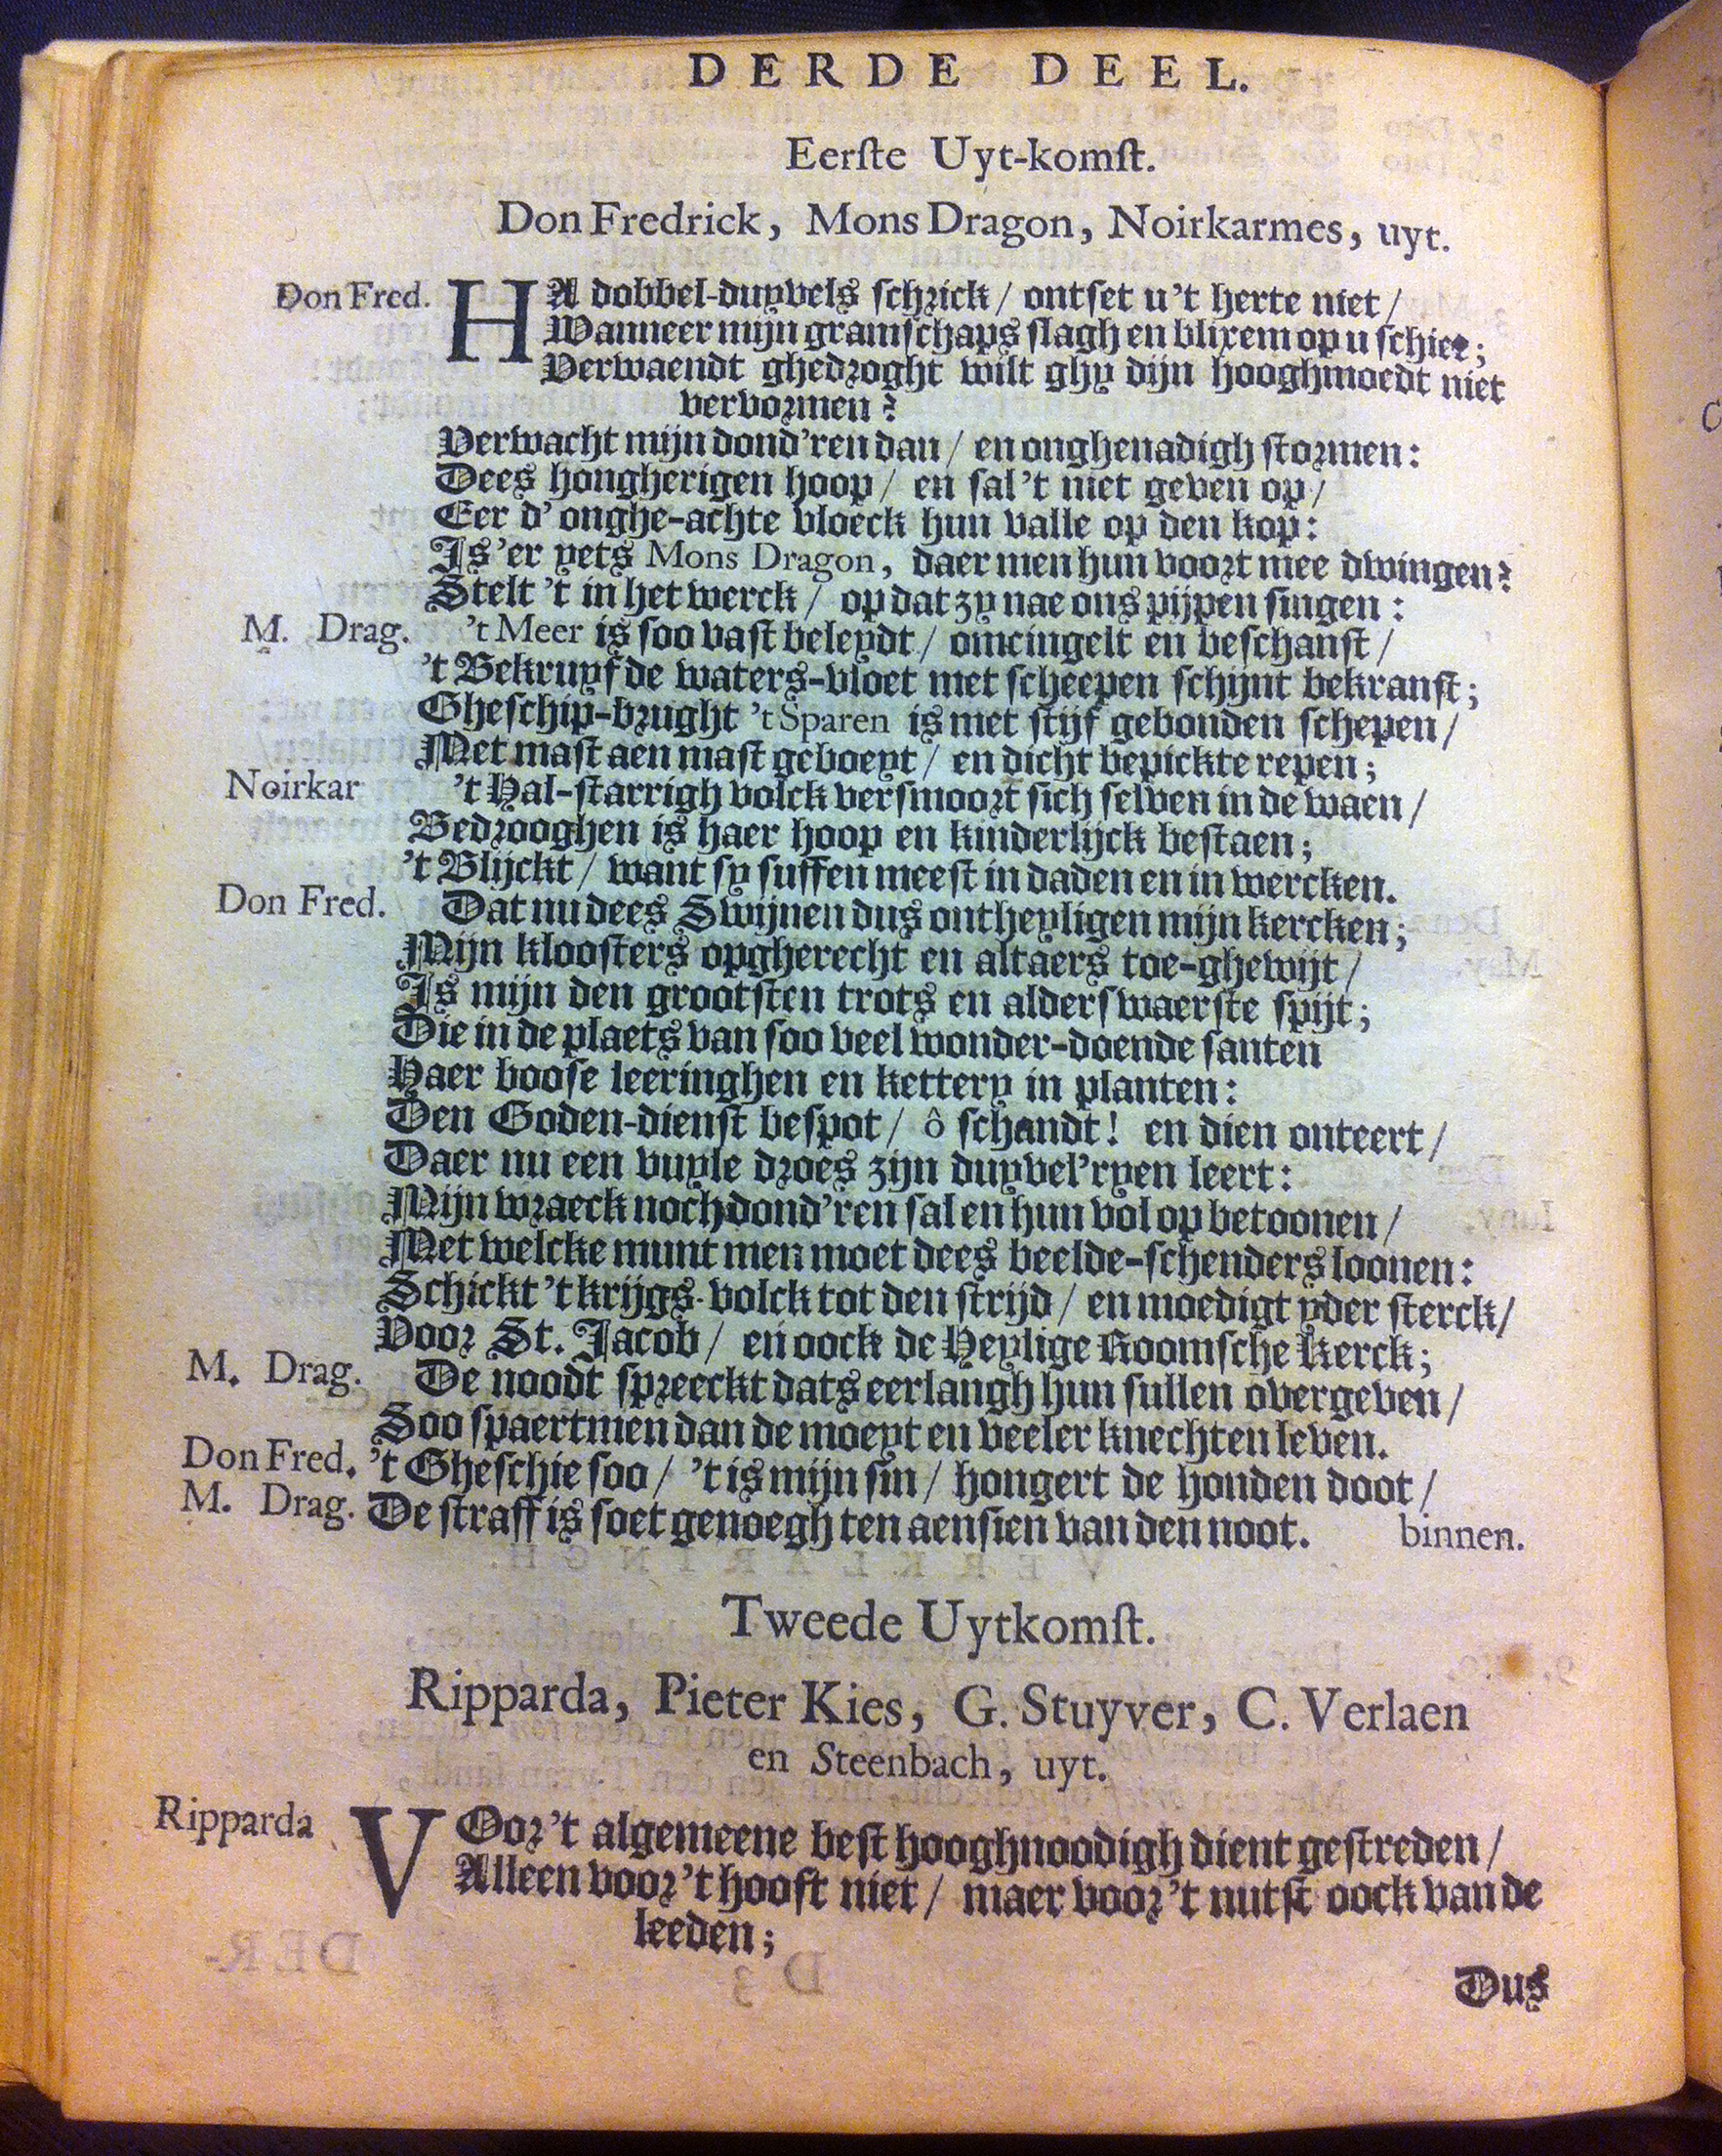 DERDE DEEL.
Eerſte Uyt-komſt.
Don Fredrick, Mons Dragon, Noirkarmes, uyt.
Don Fred. HA dobbel-duyvels ſchrick / ontſet u 't herte niet /
Wanneer mijn gramſchaps ſlagh en blixem op u ſchiet;
Verwaendt ghedroght wilt ghy dijn hooghmoedt niet
vervormen?
Verwacht mijn dond'ren dan / en onghenadigh ſtormen:
Dees hongherigen hoop / en ſal 't niet geven op /
Eer d' onghe-achte vloeck hun valle op den kop:
Is 'er yets Mons Dragon, daer men hun voort mee dwingen?
Stelt 't in het werck / op dat zy nae ons pijpen ſingen:
M. Drag. 't Meer is ſoo vaſt beleydt / omcingelt en beſchanſt /
't Bekruyfde waters-vloet met ſcheepen ſchijnt bekranſt;
Gheſchip-brught 't Sparen is met ſtijf gebonden ſchepen /
Met maſt aen maſt geboeyt / en dicht bepickte repen;
Noirkar 't Hal-ſtarrigh volck verſmoort ſich ſelven in de waen /
Bedrooghen is haer hoop en kinderlijck beſtaen;
't Blijckt / want ſy ſuffen meeſt in daden en in wercken.
Don Fred. Dat nu dees Swijnen dus ontheyligen mijn kercken;
Mijn kloosters opgherecht en altaers toe-ghewijt /
Is mijn den grootſten trots en alderſwaerſte ſpijt;
Die in de plaets van ſoo veel wonder-doende ſanten
Haer booſe leeringhen en kettery in planten:
Den Goden-dienſt beſpot / ô ſchandt! en dien onteert /
Daer nu een vuyle droes zijn duyvel'ryen leert:
Mijn wraeck noch dond'ren ſal en hun vol op betoonen /
Met welcke munt men moet dees beelde-ſchenders loonen:
Schickt 't krijgs-volck tot den ſtrijd / en moedigt yder ſterck /
Voor St. Jacob / en oock de Heylige Roomſche Kerck;
M. Drag. De noodt ſpreeckt dats eerlangh hun ſullen overgeven /
Soo ſpaertmen dan de moeyt en veeler knechten leven.
Don Fred. 't Gheſchie ſoo / 't is mijn ſin / hongert de honden doot /
M. Drag. De ſtraff is ſoet genoegh ten aenſien van den noot. binnen.
Tweede Uytkomſt.
Ripparda, Pieter Kies, G. Stuyver, C. Verlaen
en Steenbach, uyt.
Ripparda VOor 't algemeene beſt hooghnoodigh dient geſtreden /
Alleen voor 't hooft niet / maer voor 't nutſt oock van de
leeden;
Dus